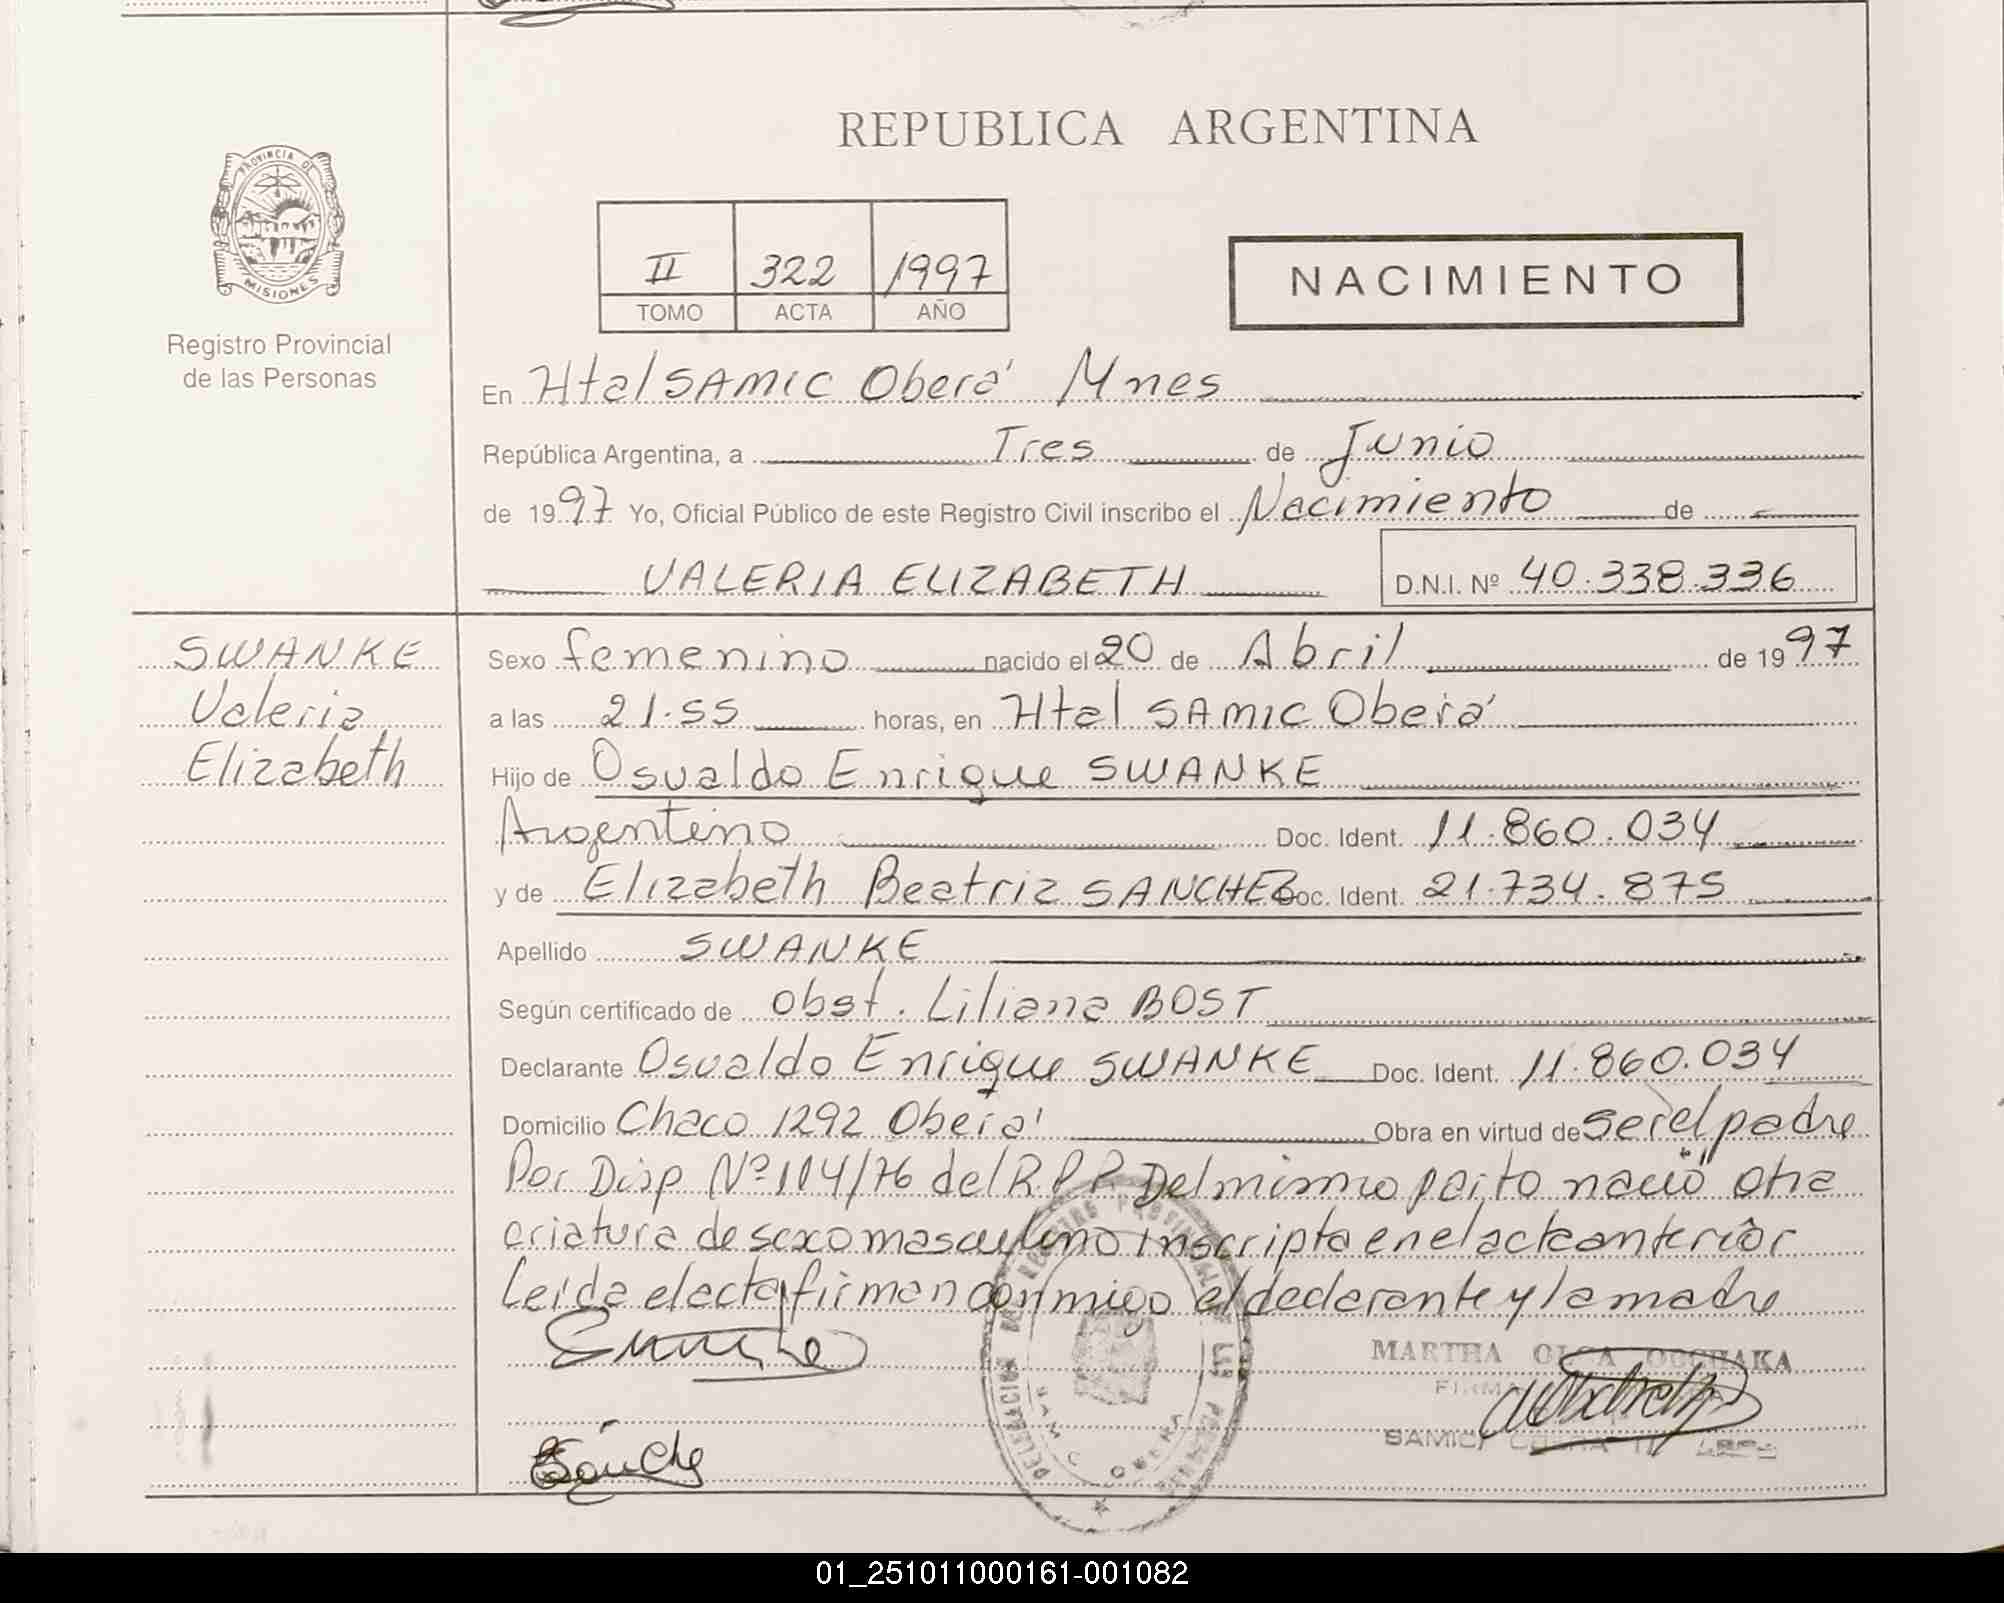 REPUBLICA ARGENTINA
PROVINCIA DE
MISIONES
Registro Provincial
de las Personas
II 322 1997
TOMO ACTA AÑO
NACIMIENTO
En Htal SAMIC Oberá Mnes
República Argentina, a Tres de Junio
de 1997 Yo, Oficial Público de este Registro Civil inscribo el Nacimiento de
VALERIA ELIZABETH D.N.I. Nº 40.338.336
SWANKE
Valeria
Elizabeth
Sexo femenino nacido el 20 de Abril de 1997
a las 21.55 horas, en Htal SAMIC Oberá
Hijo de Osvaldo Enrique SWANKE
Argentino Doc. Ident. 11.860.034
y de Elizabeth Beatriz SANCHEZ Doc. Ident. 21.734.875
Apellido SWANKE
Según certificado de Obst. Liliana BOST
Declarante Osvaldo Enrique SWANKE Doc. Ident. 11.860.034
Domicilio Chaco 1292 Oberá Obra en virtud de ser el padre
Por Disp Nº 114/76 del R.P.P. Del mismo parto nació otra
criatura de sexo masculino inscripta en el acta anterior
Leída el acta firman conmigo el declarante y la madre
MARTHA OLGA
SAMIC
DELEGACION
SAMIC OBERA
Sánche
01_251011000161-001082